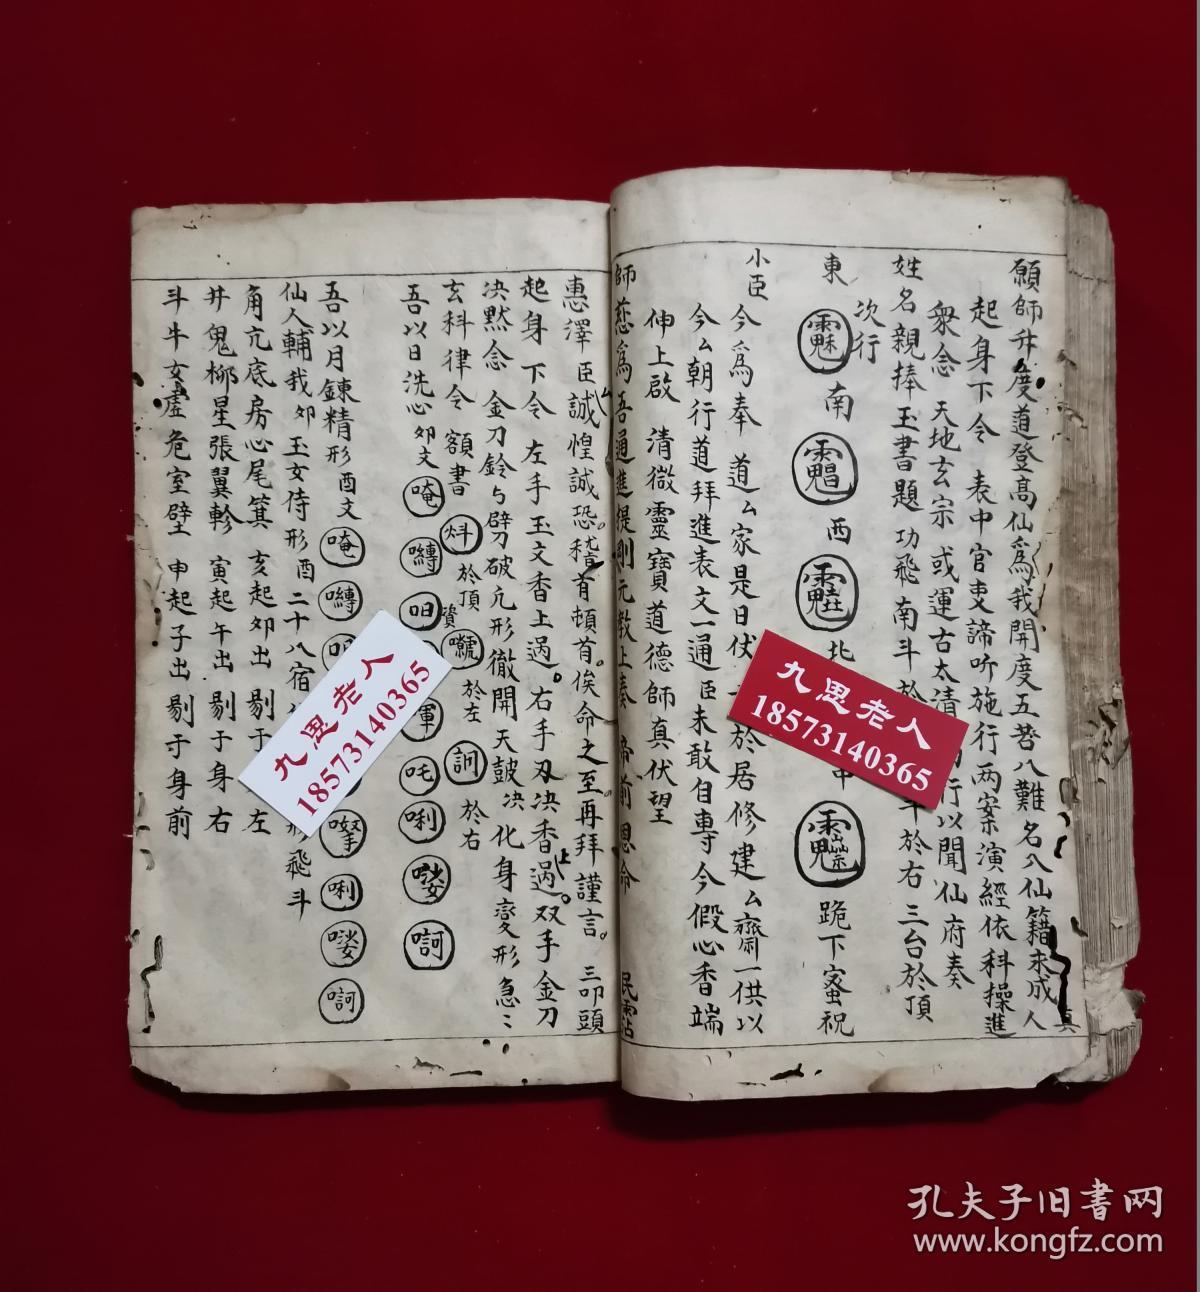 願師廾度道登高仙爲我開度五苦八難名入仙籍未成人
真
起身下令 表中官吏諦听施行两案演經依科操進
衆念 天地玄宗 或運古太清 行以聞仙府奏
姓名親捧玉書題 功飛 南斗於 斗於右 三台於頂
次行
東 南 西 北 中 跪下宻祝
小臣 今爲奉 道厶家是日伏 於居修建厶齋一供以
今厶朝行道拜進表文一通臣未敢自專今假心香端
伸上啟 清微靈寶道德師真伏望
師慈爲吾通進提剛元教上奏 帝前恩命 民霑
惠澤臣厶誠惶誠恐稽首頓首俟命之至再拜謹言 三叩頭
起身下令 左手玉文香上過 右手刃决香上過 双手金刀
决黙念 金刀鈴与劈破亢形徹開天皷决 化身變形急〻
玄科律令 額書 於頂 於左 於右
吾以日洗心 卯文 唵 嚩 吒 唎 娑 訶
吾以月鍊精形 酉文 唵 嚩 唎 娑 訶
仙人輔我 卯 玉女侍形 酉 二十八宿 形飛斗
角亢底房心尾箕 亥起卯出 剔于 左
井鬼柳星張翼軫 寅起午出 剔于身右
斗牛女虚危室壁 申起子出剔于身前
九思老人
18573140365
九思老人
18573140365
孔夫子旧書网
www.kongfz.com